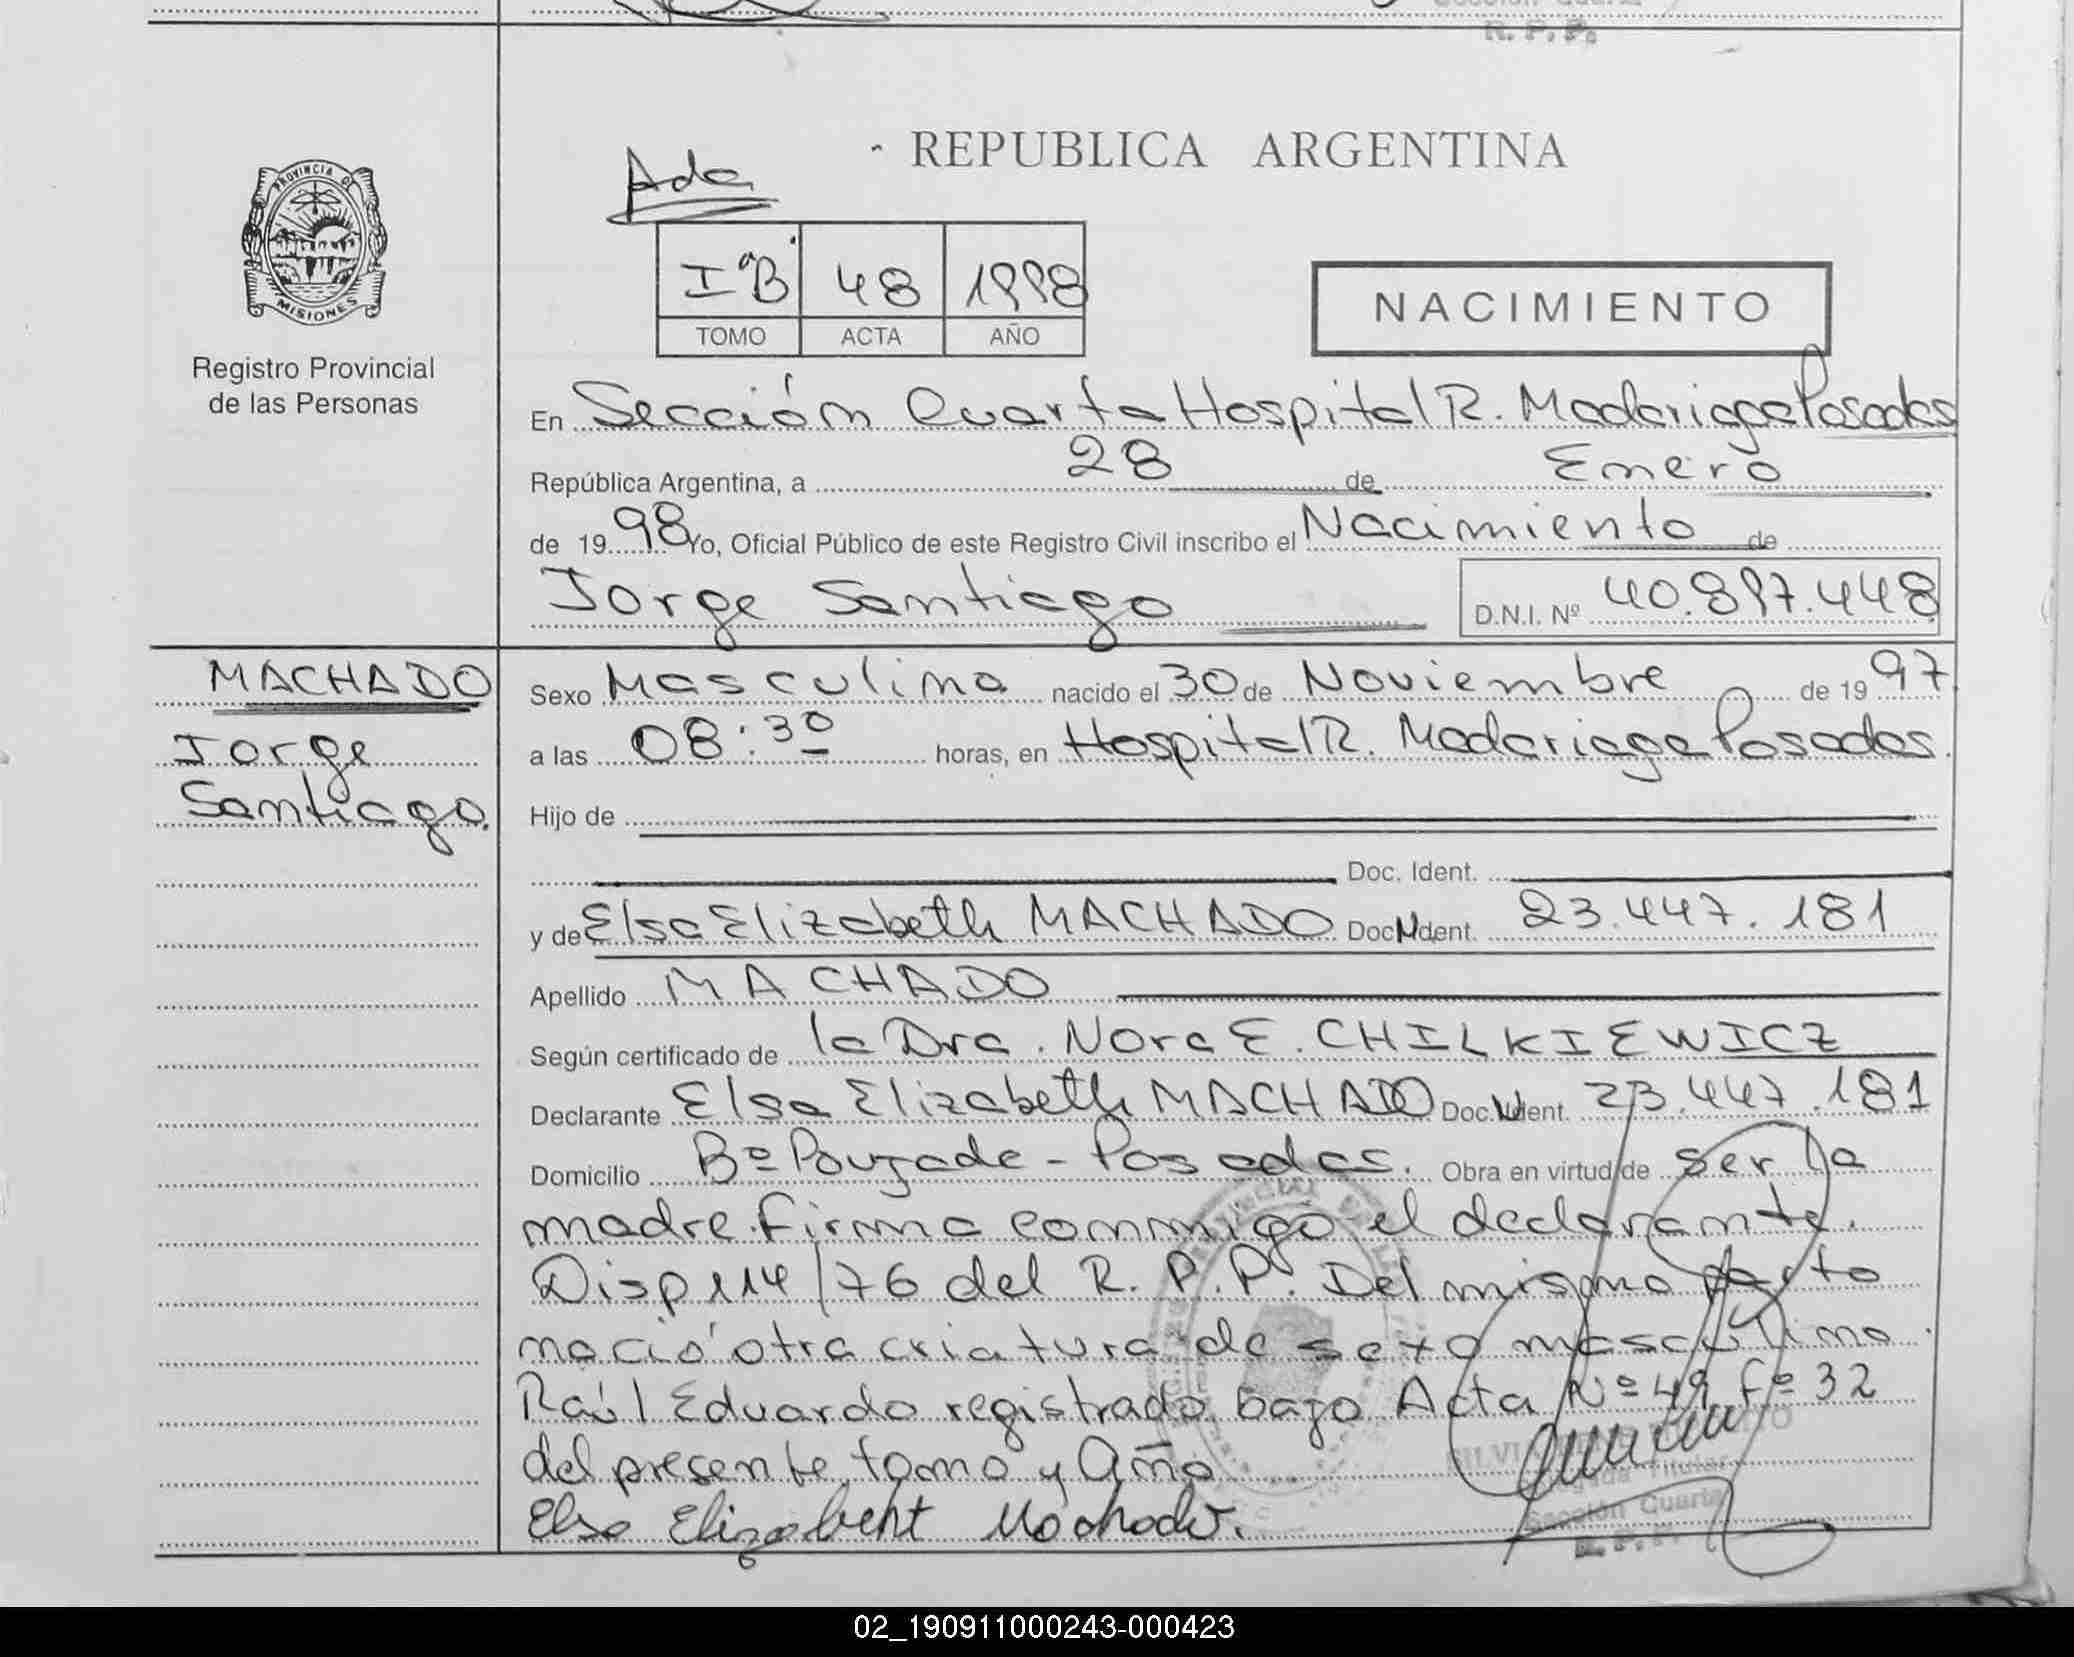 R. P. P.
REPUBLICA ARGENTINA
Ada
PROVINCIA DE
MISIONES
Registro Provincial
de las Personas
Iº B 48 1998
TOMO ACTA AÑO
NACIMIENTO
En Sección Cuarta Hospital R. Madariaga Posadas
República Argentina, a 28 de Enero
de 19 98 Yo, Oficial Público de este Registro Civil inscribo el Nacimiento de
Jorge Santiago D.N.I. Nº 40.897.448
MACHADO
Jorge
Santiago.
Sexo Masculino nacido el 30 de Noviembre de 19 97
a las 08:30 horas, en Hospital R. Madariaga Posadas.
Hijo de
Doc. Ident.
y de Elsa Elizabeth MACHADO Doc. Ident. 23.447.181
Apellido MACHADO
Según certificado de la Dra. Nora E. CHILKIEWICZ
Declarante Elsa Elizabeth MACHADO Doc. Ident. 23.447.181
Domicilio Bº Poujade - Posadas. Obra en virtud de ser la
madre. firma conmmigo el declarante.
Disp 114/76 del R. P. P. Del mismo parto
nació otra criatura de sexo masculino
Raúl Eduardo registrado bajo Acta Nº 49 fº 32
del presente tomo y Año
Elsa Elizabeht Machado.
Titular
Sección Cuarta
R. P. P.
02_190911000243-000423